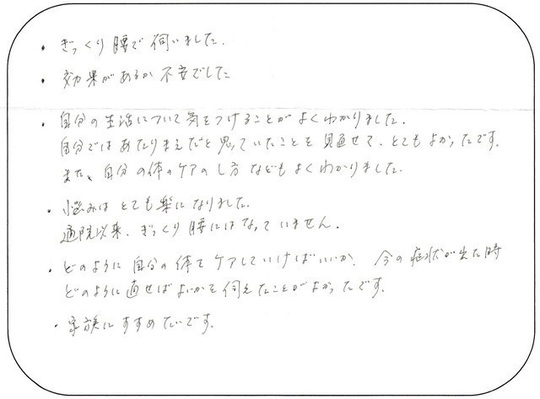 ・ぎっくり腰で伺いました。
・効果があるか不安でした
・自分の生活について気をつけることがよくわかりました。
自分ではあたりまえだと思っていたことを見直せて、とてもよかったです。
また、自分の体のケアのし方などもよくわかりました。
・悩みはとても楽になりました。
通院以来、ぎっくり腰にはなっていません。
・どのように自分の体をケアしていけばいいか、今の症状が出た時
どのように直せばよいかを伺えたことがよかったです。
・家族にすすめたいです。